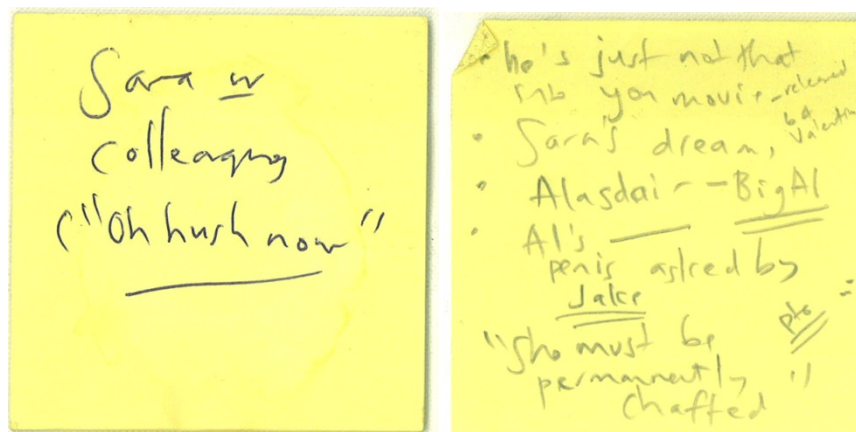 Sara w
colleagues
("Oh hush now"
• he's just not that
into you movie - released
b4
Valentin
• Sara's dream,
• Alasdair - Big Al
• Al's
penis asked by
Jake
pto
"She must be
permanently "
chaffed